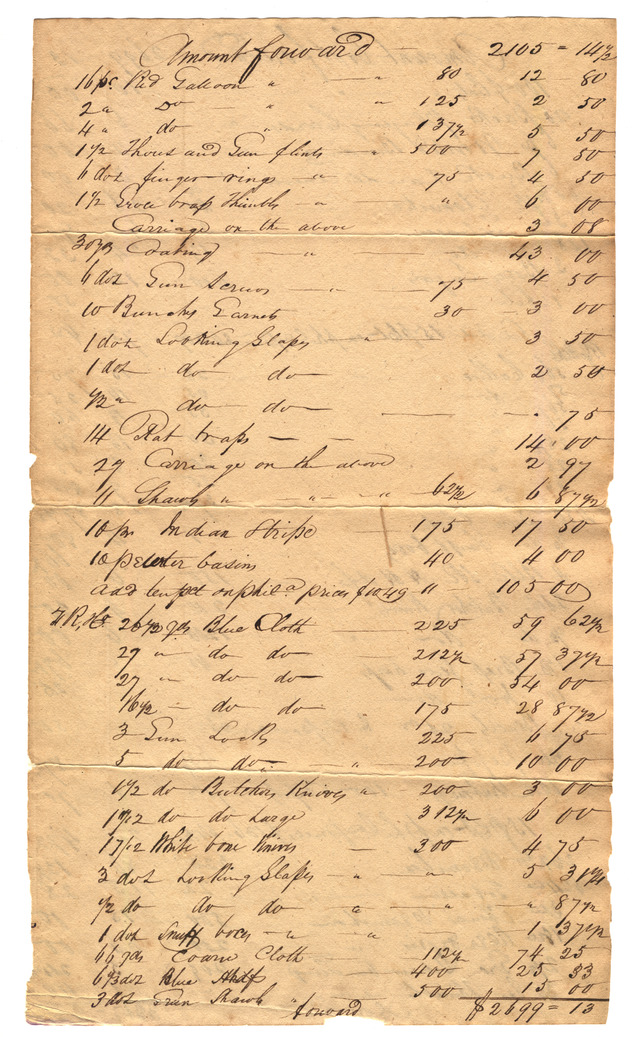 Amount forward — 2105 = 14½
16 ps. Red Galloon " " 80 12 80
2 " Do — " " 125 2 50
4 " do " 137½ 5 50
1½ Thous and Gun flints — " 500 — 7 50
6 doz finger rings — " 75 4 50
1½ Groce brass Thimbls — " " 6 00
Carriage on the above 3 08
Coating " — 43 00
6 doz Gun Screws — " — 75 4 50
10 Bunches Garnets 30 — 3 00
1 doz Looking Glasses " 3 50
1 doz do do 2 50
½ " do do — — . 75
14 Rat traps — — 14 00
27 Carriage on the above 2 97
11 Shawls " " — " 62½ 6 87½
10 ps Indian Stripe — 175 17 50
10 pewter basins 40 4 00
add ten pct on phil.a prices $1049 " — 105 00
26½ yds Blue Cloth — 225 59 62½
27 " — do do — 212½ 57 37½
27 — do do 200 . 54 00
16½ — do do — 175 28 87½
3 Gun Locks 225 6 75
5 do do — " 200 10 00
1½ do Butchers Knives " — 200 3 00
do do Large 312½ 6 00
17/12 White bone Knives — 300 4 75
3 doz Looking Glasses " — " — 5 31¼
½ do do do " — " — " 87½
1 doz Snuff boxes — " " 1 37½
66 yds Coarse Cloth — 112½ 74 25
6⅓ doz Blue Hdkfs 400 25 33
3 doz Shawls " 500 15 00
forward $2699 = 13